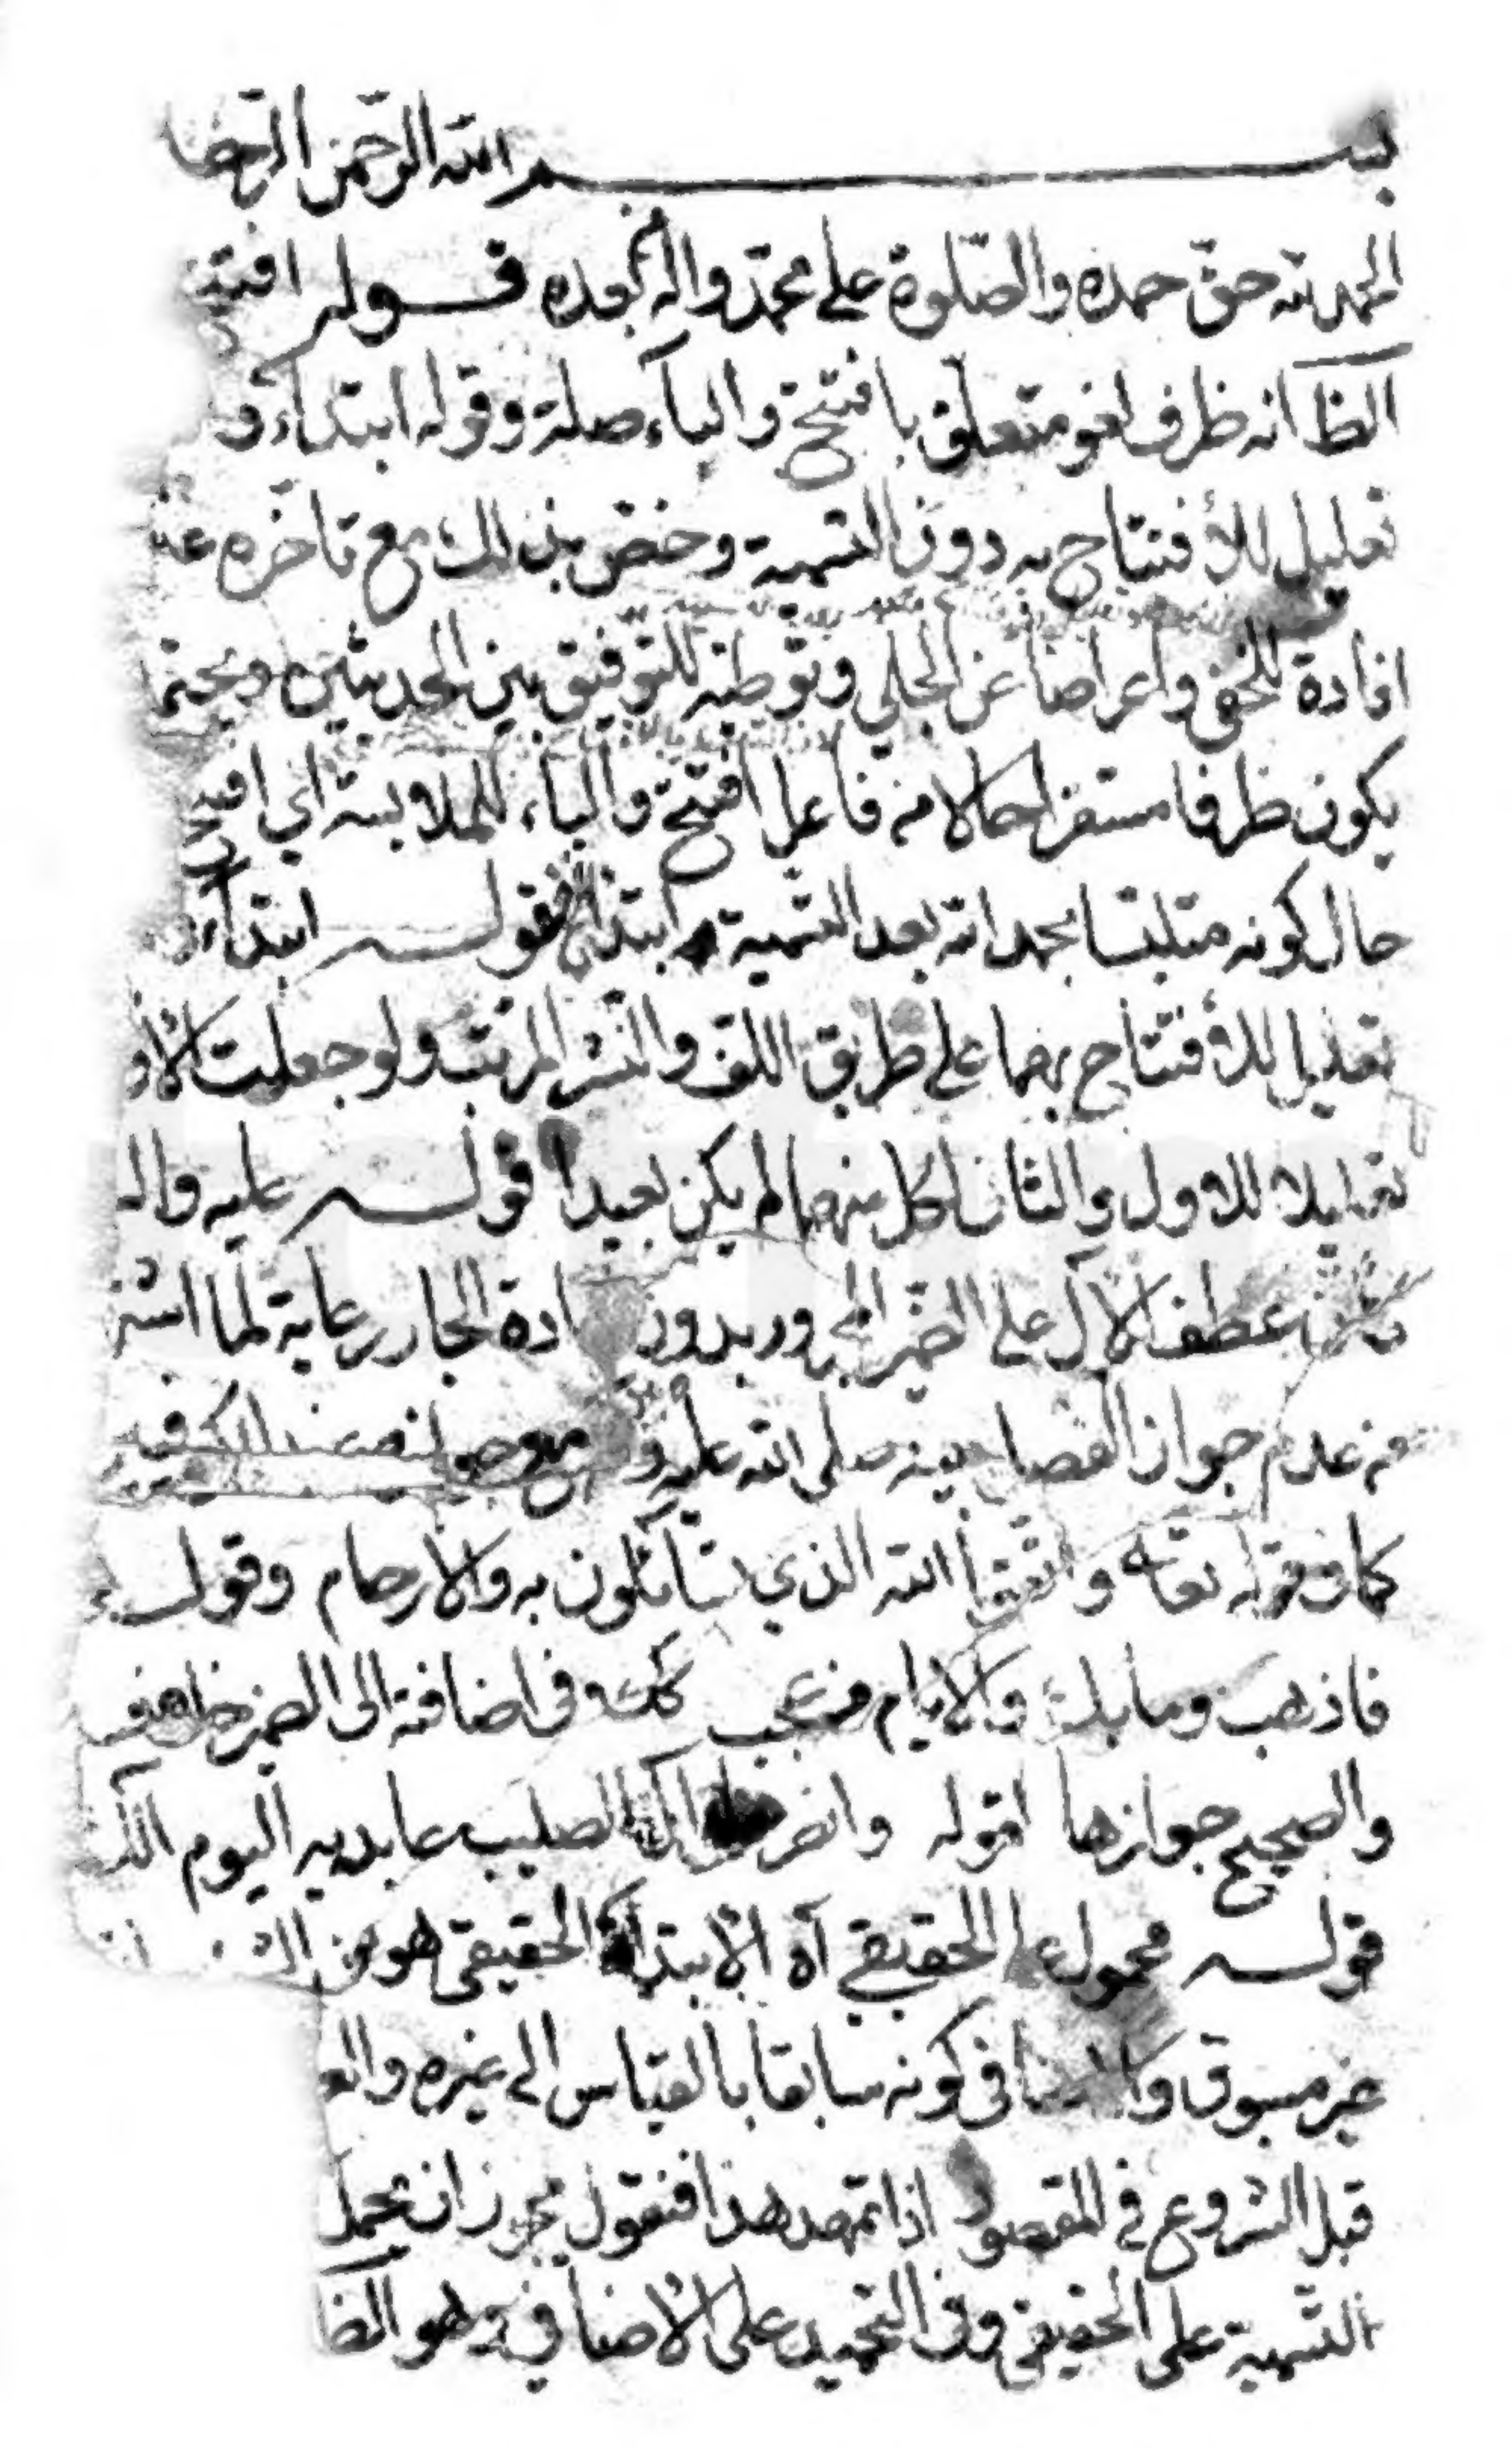 بسم الله الرحمن الرحيم
الحمد لله حق حمده والصلوة على محمد واله بعده قوله افتتح
الظ انه ظرف لغو متعلق بافتتح والباء صلة وقوله ابتداء
تعليل للأفتتاح به دون التسمية وخص بذلك مع تاخره عنه
افادة للخفى واعراضا عن الجلي وتوطئه للتوفيق بين الحديثين ويحتمل
يكون ظرفا مستقرا حالا من فاعل افتتح والباء للملابسة اي افتتح
حال كونه متلبسا بحمد الله بعد التسمية ابتداء فقوله ابتداء
تعليل للأفتتاح بهما على طريق اللف والنشر المرتب ولو جعلت الاول
تعليلا للاول والثانى لكل منهما لم يكن بعيدا قوله عليه واله
عطف الآل على الضمير المجرور بدون ادة الجار رعاية لما اشتهر
من عدم جواز الفصل بينه صلى الله عليه و مع جوازه عند الكوفيين
كما فى قوله تعالى واتقوا الله الذي تسائلون به والارحام وقوله
فاذهب وما بك والايام من عجب كذا وفى اضافته الى الضمير خلاف
والصحيح جوازها لقوله وانصر على ال الصليب عابديه اليوم الك
قوله محمول على الحقيقي آه الابتداء الحقيقي هو من
غير مسبوق والاضافى كونه سابقا بالقياس الى غيره والعرفي
قبل الشروع في المقصود اذا تمهد هذا فنقول يجوز ان يحمل
التسمية على الحقيقي وفى التحميد على الاضافي وهو الظ